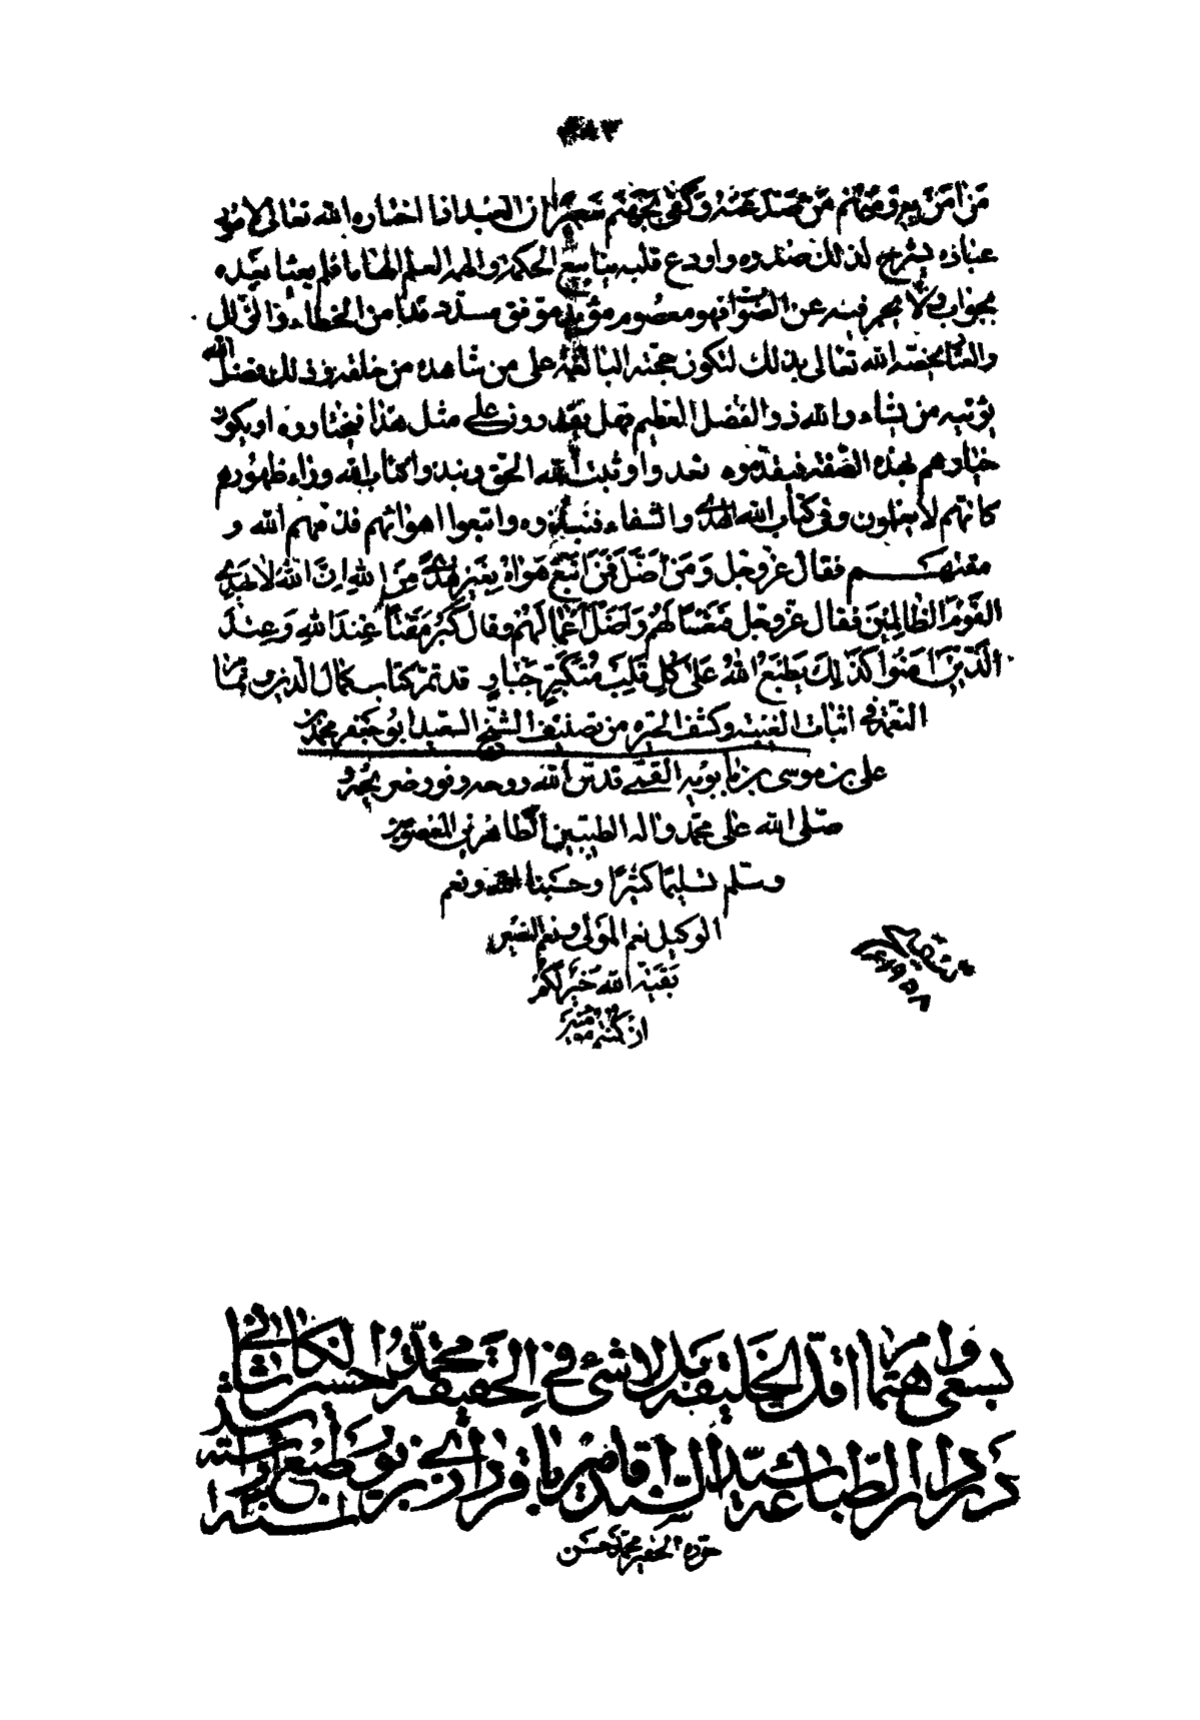 مَن اٰمَنَ بِهِ وَمِنْهُمْ مَنْ صَدَّ عَنْهُ وَكَفى بِجَهَنَّمَ سَعيرًا ان العبد اذا اختاره الله تعالى لامور
عباده يشرح لذلك صدره واودع قلبه ينابيع الحكمة والهمه العلم الهاما فلم يعى بعده
بجواب ولا يحير فيه عن الصواب فهو معصوم مؤيد موفق مسدد قد امن من الخطاء والزلل
والعثار يخصه الله تعالى بذلك لتكون حجته البالغة على من شاهده من خلقه وذلك فضل الله
يؤتيه من يشاء والله ذو الفضل العظيم فهل يقدرون على مثل هذا فيختاروه او يكون
خيارهم بهذه الصفة فيقدموه بعدوا وبيت الله الحق ونبذوا كتاب الله وراء ظهورهم
كانهم لا يعلمون وفى كتاب الله الهدى والشفاء فنبذوه واتبعوا اهوائهم فذمهم الله و
مقتهم فقال عز وجل وَمَن اَضَلُّ مِمَّنِ اتَّبَعَ هَوٰاهُ بِغَيْرِ هُدًى مِنَ اللهِ اِنَّ اللهَ لا يَهْدِى
القَوْمَ الظّالِمينَ فقال عز وجل فَتَعْسًا لَهُمْ وَاَضَلَّ اَعْمالَهُمْ وقال كَبُرَ مَقْتًا عِنْدَ اللهِ وَعِنْدَ
الَّذينَ اٰمَنُوا كَذٰلِكَ يَطْبَعُ اللهُ عَلى كُلِّ قَلْبِ مُتَكَبِّرٍ جَبّارٍ قد تم كتاب كمال الدين وتمام
النعمة فى اثبات الغيبة وكشف الحيرة من تصنيف الشيخ السعيد ابو جعفر محمد بن
على بن موسى بن بابويه القمى قدس الله روحه ونور ضريحه و
صلى الله على محمد واله الطيبين الطاهرين المعصومين
وسلم تسليما كثيرا وحسبنا الله ونعم
الوكيل نعم المولى ونعم النصير
بقية الله خير لكم
ان كنتم مؤمنين
بسعى واهتمام اقل الخليقه بل لا شئ فى الحقيقه محمد حسن الكاشانى
در دار الطباعة استاد السيد اقا مير باقر بزيور طبع اراسته
حرره الحقير محمد حسن